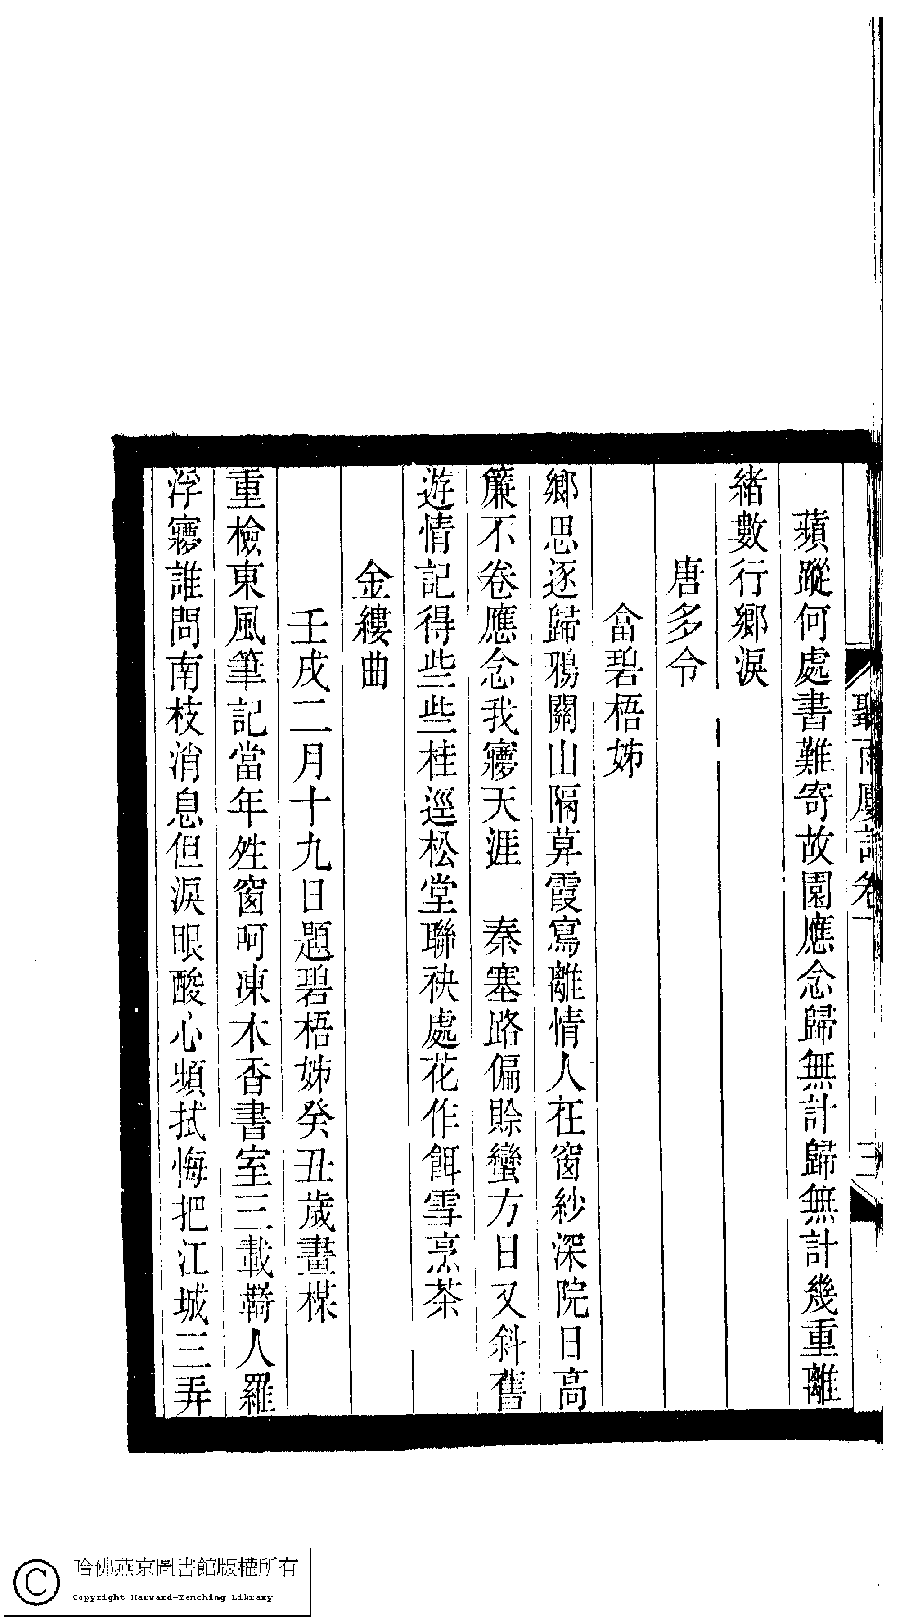 蘋蹤何處書難寄故園應念歸無計歸無計幾重離
緒數行鄉淚
唐多令
畣碧梧姊
鄉思逐歸鴉關山隔算霞寫離情人在窗紗深院日高
簾不卷應念我㝱天涯　秦塞路偏賒蠻方日又斜舊
遊情記得些些桂逕松堂聯袂處花作餌雪烹茶
金縷曲
壬戌二月十九日題碧梧姊癸丑歲畫楳
重檢東風筆記當年 窗呵凍木香書室三載羇人羅
浮㝱誰問南枝消息但淚眼酸心頻拭悔把江城三弄
聽雨廔詞卷一
三
哈佛燕京圖書館版權所有
Copyright Harvard-Yenching Library